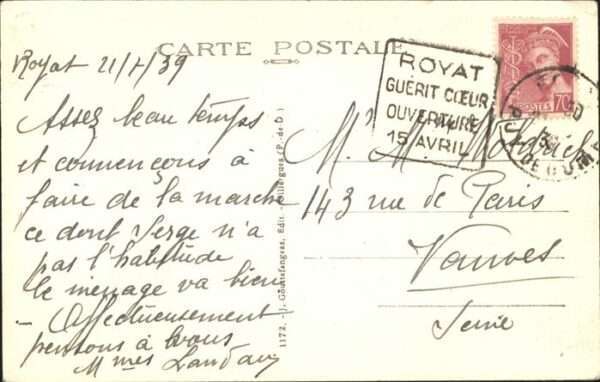 CARTE POSTALE
Royat 21/ /39
Assez beau temps
et commençons à
faire de la marche
ce dont Serge n'a
pas l'habitude
le ménage va bien
Affectueusement
pensons à vous
Mmes Landau
ROYAT
GUÉRIT CŒUR
OUVERTURE
15 AVRIL
POSTES 70c
DE DOME
M. M.
143 rue de Paris
Vanves
Seine
1172. - J. Gouttefangeas, Edit. - Ollliergues (P.-de-D.)